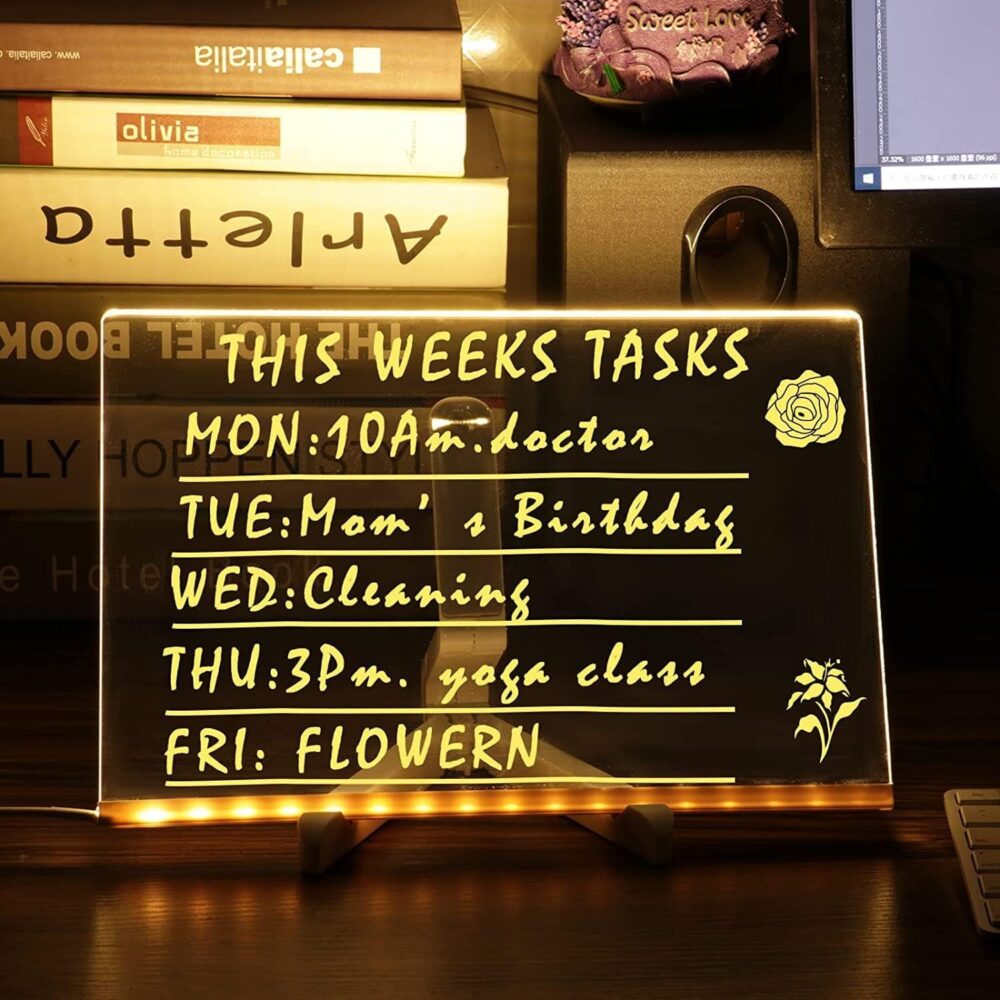 Sweet Love
www.caliaitalia.
caliaitalia
olivia
home decoration
Arletta
THE HOTEL BOOK
THIS WEEKS TASKS
MON:10Am.doctor
LLY HOPPEN STYL
TUE:Mom's Birthday
WED:Cleaning
THU:3Pm. yoga class
FRI: FLOWERN
37.32% 1600 像素 x 1600 像素 (96 ppi)